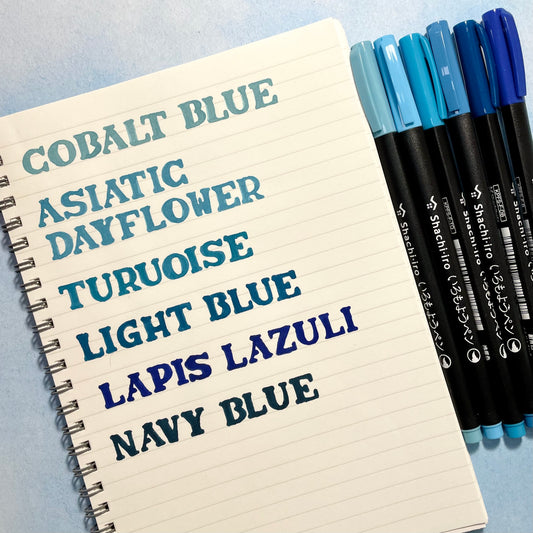 COBALT BLUE
ASIATIC
DAYFLOWER
TURUOISE
LIGHT BLUE
LAPIS LAZULI
NAVY BLUE
Shachi:iro いろもようペン
Shachi:iro いろもようペン
Shachi:iro